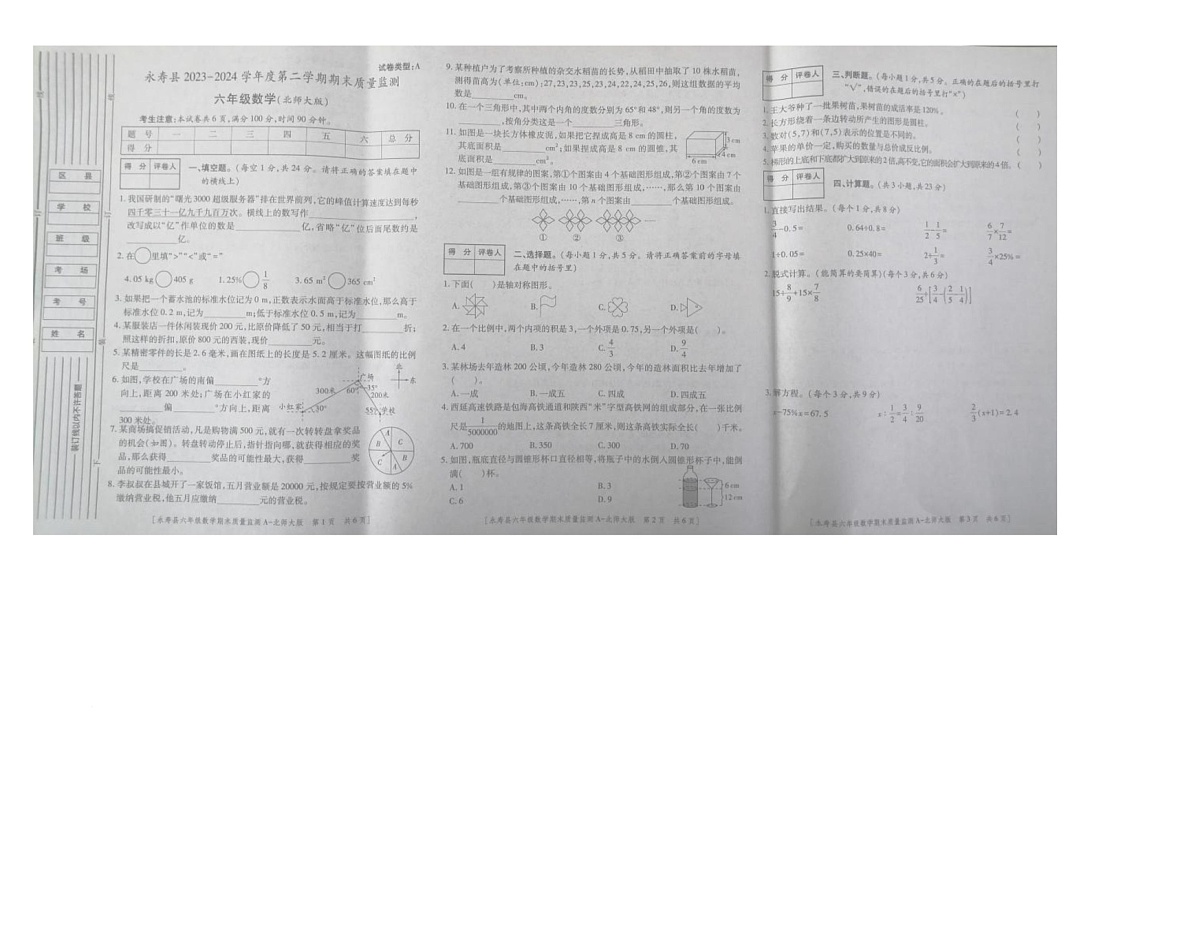 试卷类型:A
永寿县 2023-2024 学年度第二学期期末质量监测
六年级数学(北师大版)
考生注意:本试卷共 6 页,满分 100 分,时间 90 分钟。
题 号 一 二 三 四 五 六 总 分
得 分
得 分 评卷人
一、填空题。(每空 1 分,共 24 分。请将正确的答案填在题中
的横线上)
1. 我国研制的“曙光 3000 超级服务器”排在世界前列,它的峰值计算速度达到每秒
四千零三十一亿九千九百万次。横线上的数写作__________,
改写成以“亿”作单位的数是__________亿,省略“亿”位后面尾数约是
__________亿。
2. 在○里填“>”“<”或“=”
4.05 kg○405 g 1.25%○1/8 3.65 m²○365 cm²
3. 如果把一个蓄水池的标准水位记为 0 m,正数表示水面高于标准水位,那么高于
标准水位 0.2 m,记为________m;低于标准水位 0.5 m,记为________m。
4. 某服装店一件休闲装现价 200 元,比原价降低了 50 元,相当于打________折;
照这样的折扣,原价 800 元的西装,现价________元。
5. 某精密零件的长是 2.6 毫米,画在图纸上的长度是 5.2 厘米。这幅图纸的比例
尺是________。
6. 如图,学校在广场的南偏________°方
向上,距离 200 米处;广场在小红家的
________偏________°方向上,距离
300 米处。
北
东
广场
300米
60°
35°
200米
小红家
30°
55°
学校
7. 某商场搞促销活动,凡是购物满 500 元,就有一次转转盘拿奖品
的机会(如图)。转盘转动停止后,指针指向哪,就获得相应的奖
品,那么获得________奖品的可能性最大,获得________奖
品的可能性最小。
A
B
C
C
B
A
8. 李叔叔在县城开了一家饭馆,五月营业额是 20000 元,按规定要按营业额的 5%
缴纳营业税,他五月应缴纳________元的营业税。
[永寿县六年级数学期末质量监测 A-北师大版 第 1 页 共 6 页]
区 县
学 校
班 级
考 场
考 号
姓 名
装订线以内不许答题
9. 某种植户为了考察所种植的杂交水稻苗的长势,从稻田中抽取了 10 株水稻苗,
测得苗高为(单位:cm):27,23,23,25,23,24,22,24,25,26,则这组数据的平均
数是________cm。
10. 在一个三角形中,其中两个内角的度数分别为 65°和 48°,则另一个角的度数为
________,按角分类这是一个________三角形。
11. 如图是一块长方体橡皮泥,如果把它捏成高是 8 cm 的圆柱,
其底面积是________cm²;如果捏成高是 8 cm 的圆锥,其
底面积是________cm²。
3 cm
4 cm
6 cm
12. 如图是一组有规律的图案,第①个图案由 4 个基础图形组成,第②个图案由 7 个
基础图形组成,第③个图案由 10 个基础图形组成,……,那么第 10 个图案由
________个基础图形组成,……,第 n 个图案由________个基础图形组成。
① ② ③
得 分 评卷人
二、选择题。(每小题 1 分,共 5 分。请将正确答案前的字母填
在题中的括号里)
1. 下面( )是轴对称图形。
A. B. C. D.
2. 在一个比例中,两个内项的积是 3,一个外项是 0.75,另一个外项是( )。
A. 4 B. 3 C. 4/3 D. 9/4
3. 某林场去年造林 200 公顷,今年造林 280 公顷,今年的造林面积比去年增加了
( )。
A. 一成 B. 一成五 C. 四成 D. 四成五
4. 西延高速铁路是包海高铁通道和陕西“米”字型高铁网的组成部分,在一张比例
尺是 1/5000000 的地图上,这条高铁全长 7 厘米,则这条高铁实际全长( )千米。
A. 700 B. 350 C. 300 D. 70
5. 如图,瓶底直径与圆锥形杯口直径相等,将瓶子中的水倒入圆锥形杯子中,能倒
满( )杯。
A. 1 B. 3
C. 6 D. 9
6 cm
12 cm
[永寿县六年级数学期末质量监测 A-北师大版 第 2 页 共 6 页]
得 分 评卷人
三、判断题。(每小题 1 分,共 5 分。正确的在题后的括号里打
“√”,错误的在题后的括号里打“×”)
1. 王大爷种了一批果树苗,果树苗的成活率是 120%。 ( )
2. 长方形绕着一条边转动所产生的图形是圆柱。 ( )
3. 数对(5,7)和(7,5)表示的位置是不同的。 ( )
4. 苹果的单价一定,购买的数量与总价成反比例。 ( )
5. 梯形的上底和下底都扩大到原来的2倍,高不变,它的面积会扩大到原来的4倍。( )
得 分 评卷人
四、计算题。(共 3 小题,共 23 分)
1. 直接写出结果。(每个 1 分,共 8 分)
3/4-0.5= 0.64÷0.8= 1/2 1/5= 6/7 7/12=
1÷0.05= 0.25×40= 2÷1/3= 3/4×25%=
2. 脱式计算。(能简算的要简算)(每个 3 分,共 6 分)
15÷8/9+15×7/8 6/25÷[3/4-(2/5-1/4)]
3. 解方程。(每个 3 分,共 9 分)
x-75%x=67.5 x:1/2=3/4:9/20 2/3(x+1)=2.4
[永寿县六年级数学期末质量监测 A-北师大版 第 3 页 共 6 页]